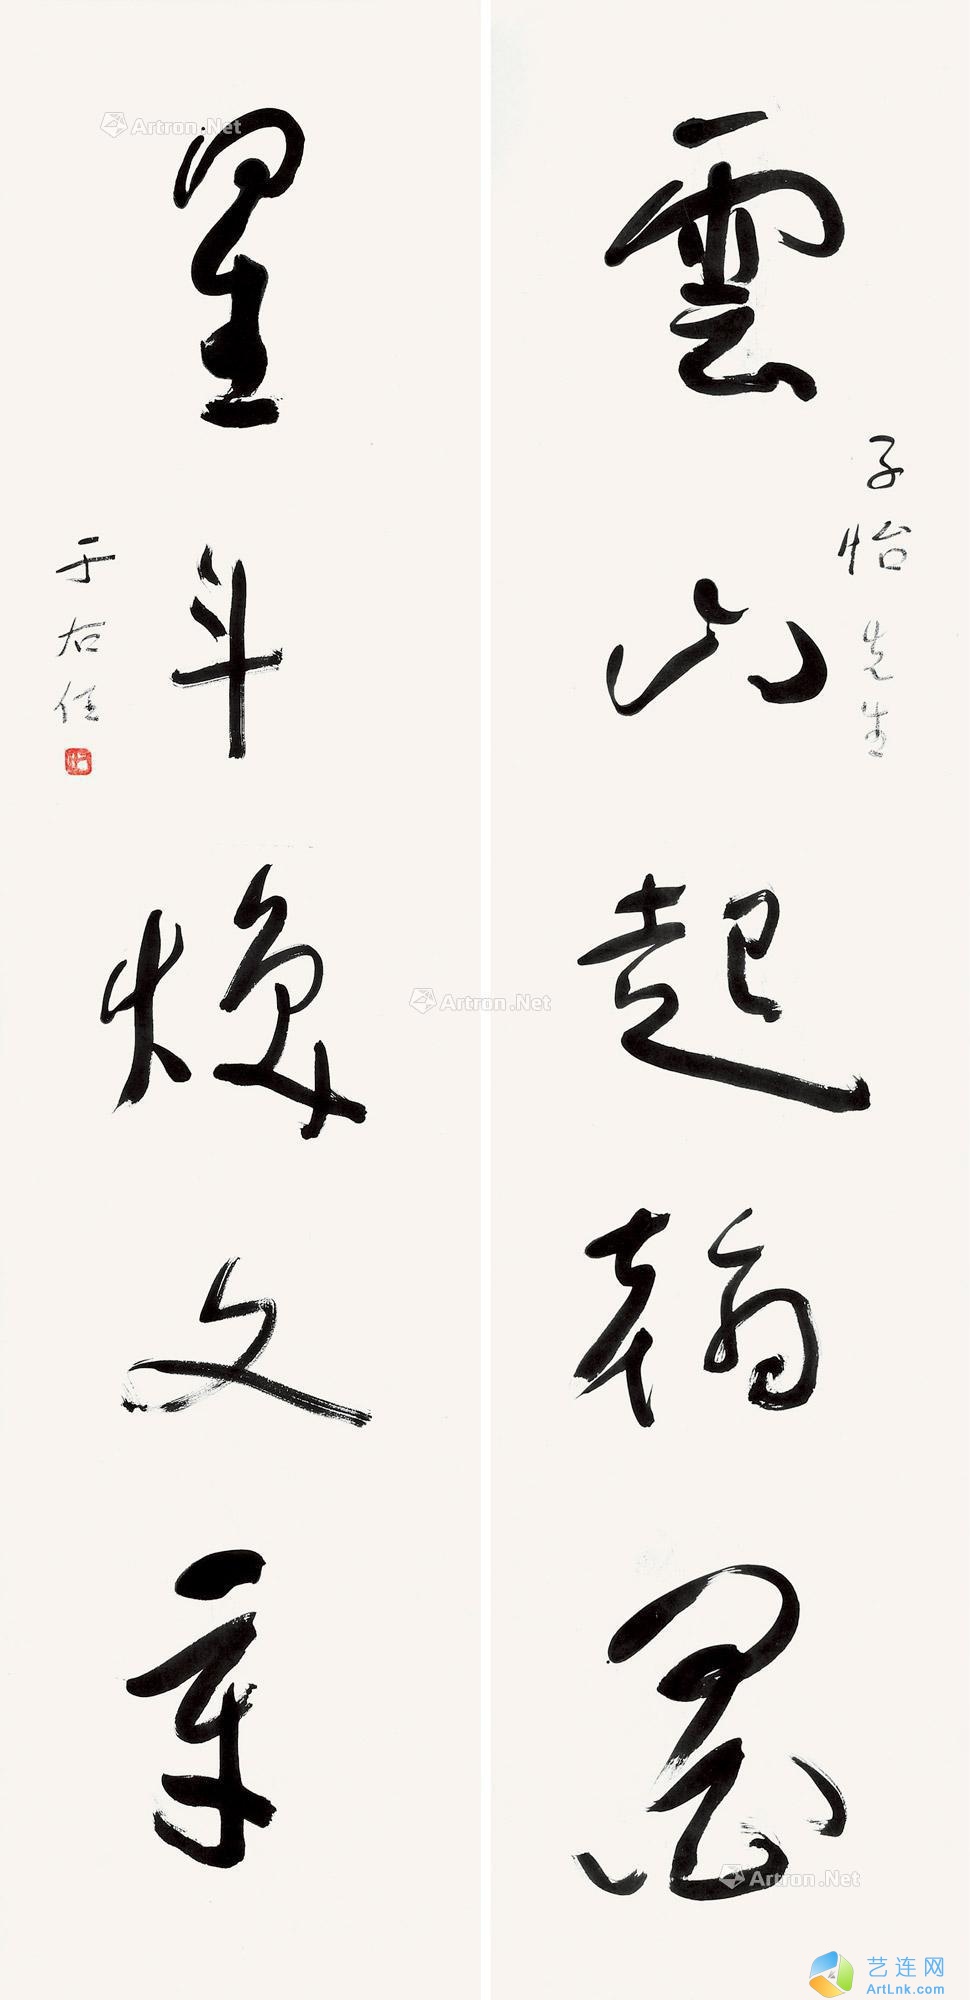 雲山起翰墨
子怡先生
星斗煥文章
于右任
Artron.Net
Artron.Net
Artron.Net
艺连网
ArtLnk.com